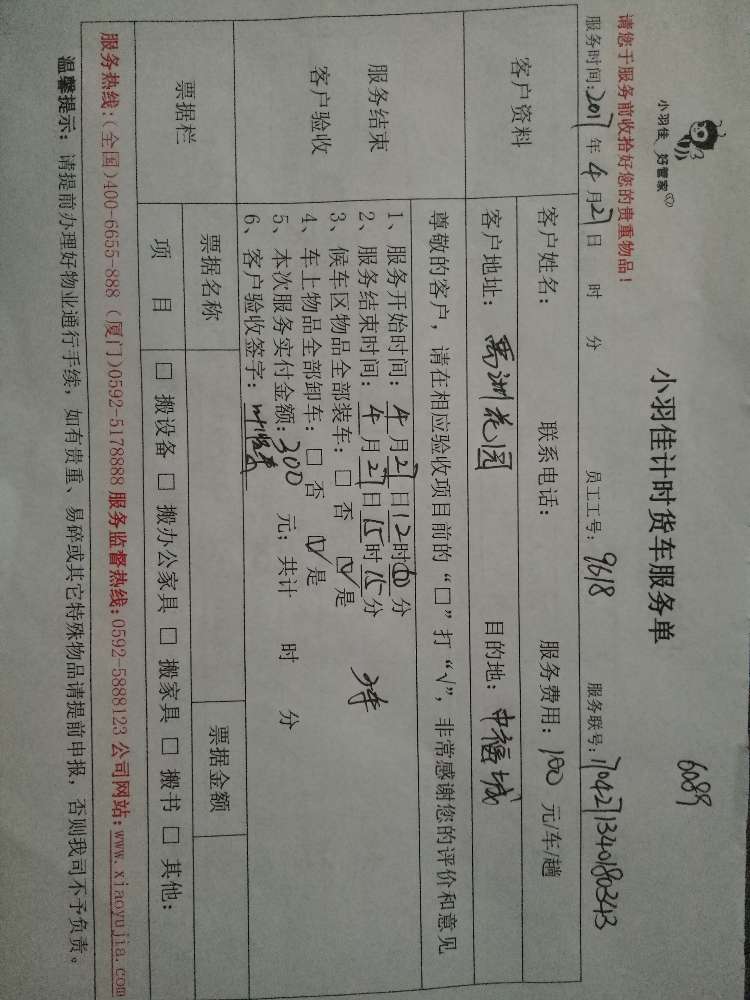 6089
小羽佳 好管家
小羽佳计时货车服务单
请您于服务前收拾好您的贵重物品！
服务时间：2017年4月27日 时 分 员工工号：9618 服务联号：1704271340180343
客户资料
客户姓名： 联系电话： 服务费用：100 元/车/趟
客户地址：禹洲花园 目的地：中福城
服务结束
客户验收
尊敬的客户，请在相应验收项目前的“□”打“√”，非常感谢您的评价和意见
1、服务开始时间：4月27日12时00分
2、服务结束时间：4月27日15时15分
3、候车区物品全部装车：□ 否 ☑ 是
4、车上物品全部卸车：□ 否 ☑ 是
5、本次服务实付金额：300 元；共计 时 分
6、客户验收签字：
票据栏
票据名称 票据金额
项 目 □ 搬设备 □ 搬办公家具 □ 搬家具 □ 搬书 □ 其他：
服务热线：(全国)400-6655-888 (厦门)0592-5178888 服务监督热线：0592-5888123 公司网站：www.xiaoyujia.com
温馨提示：请提前办理好物业通行手续，如有贵重、易碎或其它特殊物品请提前申报，否则我司不予负责。